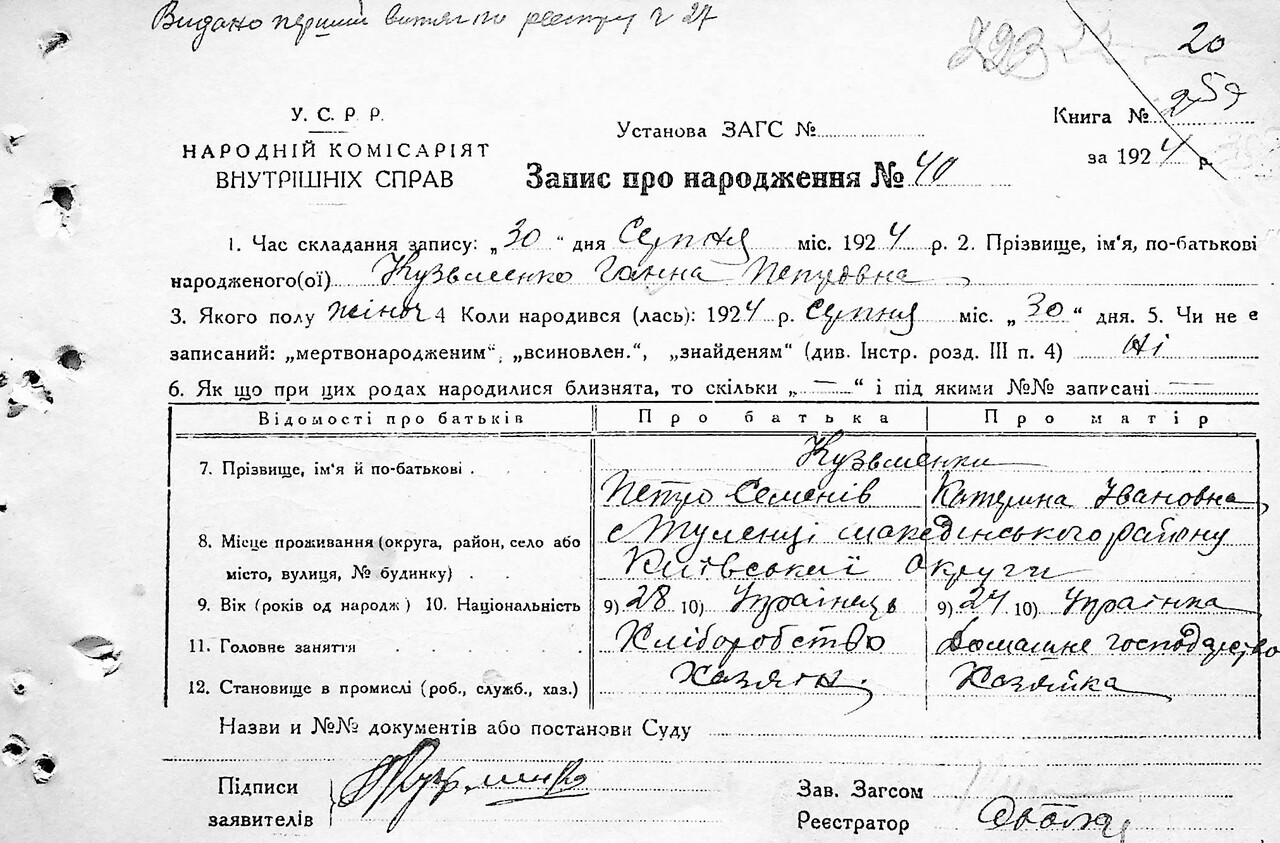 Видано перший витяг по реєстру № 27
20
У. С. Р. Р.
НАРОДНІЙ КОМІСАРІЯТ
ВНУТРІШНІХ СПРАВ
Установа ЗАГС №
Запис про народження № 40
Книга №
за 1924 р.
1. Час складання запису: „30“ дня Серпня міс. 1924 р. 2. Прізвище, ім'я, по-батькові
народженого(ої) Кузьменко Ганна Петровна
3. Якого полу жіноч 4 Коли народився (лась): 1924 р. Серпня міс. „30“ дня. 5. Чи не є
записаний: „мертвонародженим“, „всиновлен.“, „знайденям“ (див. Інстр. розд. III п. 4) Ні
6. Як що при цих родах народилися близнята, то скільки „—“ і під якими №№ записані —
Відомості про батьків Про батька Про матір
7. Прізвище, ім'я й по-батькові . Кузьменки
Петро Семенів Катерина Івановна
8. Місце проживання (округа, район, село або с Туленці макединського району
місто, вулиця, № будинку) . . Київської Округи
9. Вік (років од народж) 10. Національність 9) 28 10) Українець 9) 27 10) Українка
11. Головне заняття . . . . . Хліборобство Домашне господарство
12. Становище в промислі (роб., служб., хаз.) Хазяін. Хазяйка
Назви и №№ документів або постанови Суду
Підписи
заявителів
Зав. Загсом
Реєстратор